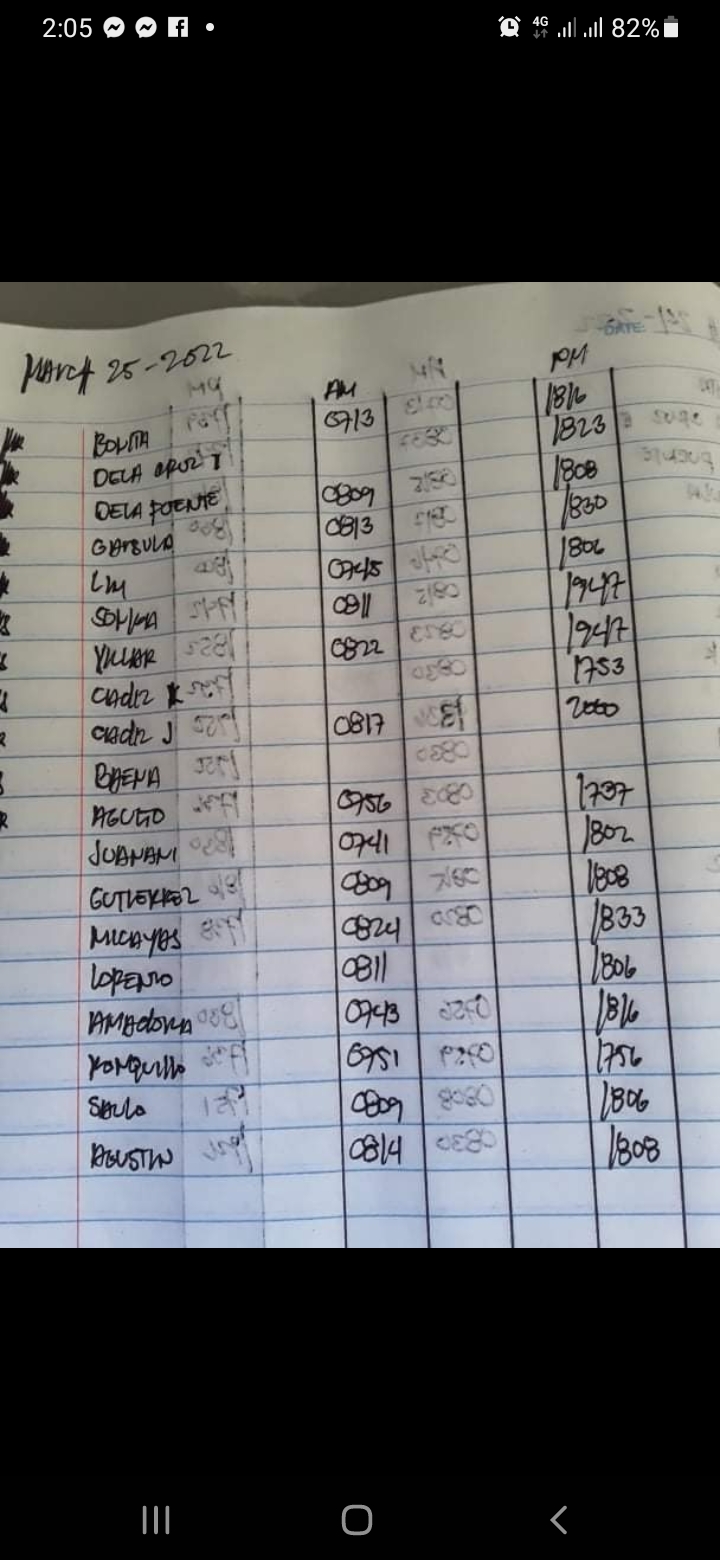 2:05 82%
4G
DATE:
MARCH 25-2022
AM PM
BOLITA 0713 1816
DELA CRUZ 1823
DELA FUENTE 0809 1808
0813 1830
LIM 0745 1806
0811 1947
VILLAR 0822 1947
CADIZ K 1753
CADIZ J 0817 2000
BAENA
AGULTO 0756 1737
JUANANI 0741 1802
GUTIERREZ 0809 1808
MICAYAS 0824 1833
LORENZO 0811 1806
0743 1816
RONQUILLO 0751 1756
SAULO 0809 1806
AGUSTIN 0814 1808